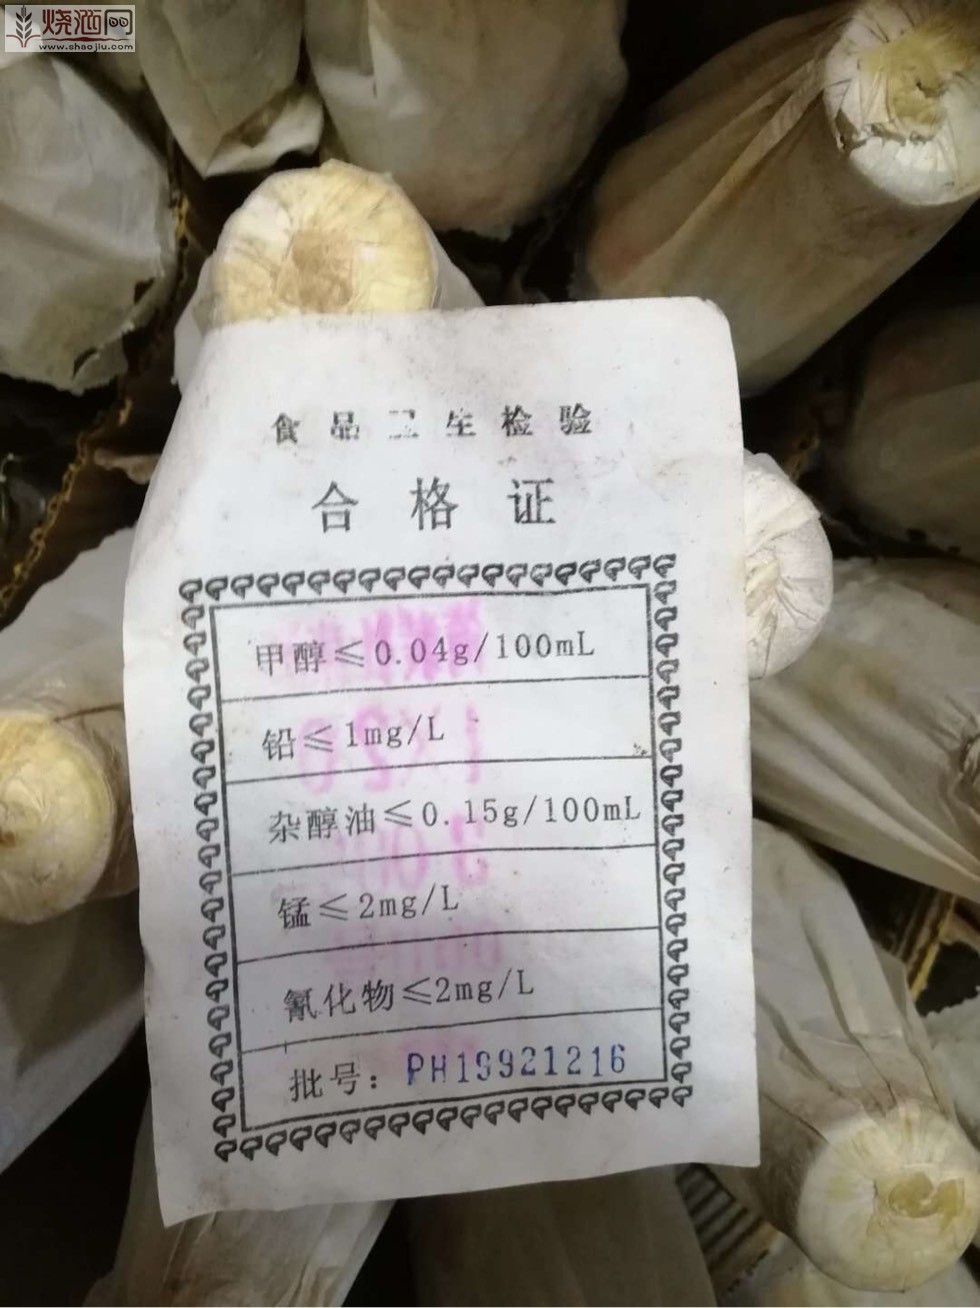 烧酒网
www.shaojiu.com
食品卫生检验
合格证
甲醇≤0.04g/100mL
铅≤1mg/L
杂醇油≤0.15g/100mL
锰≤2mg/L
氰化物≤2mg/L
批号：PH19921216